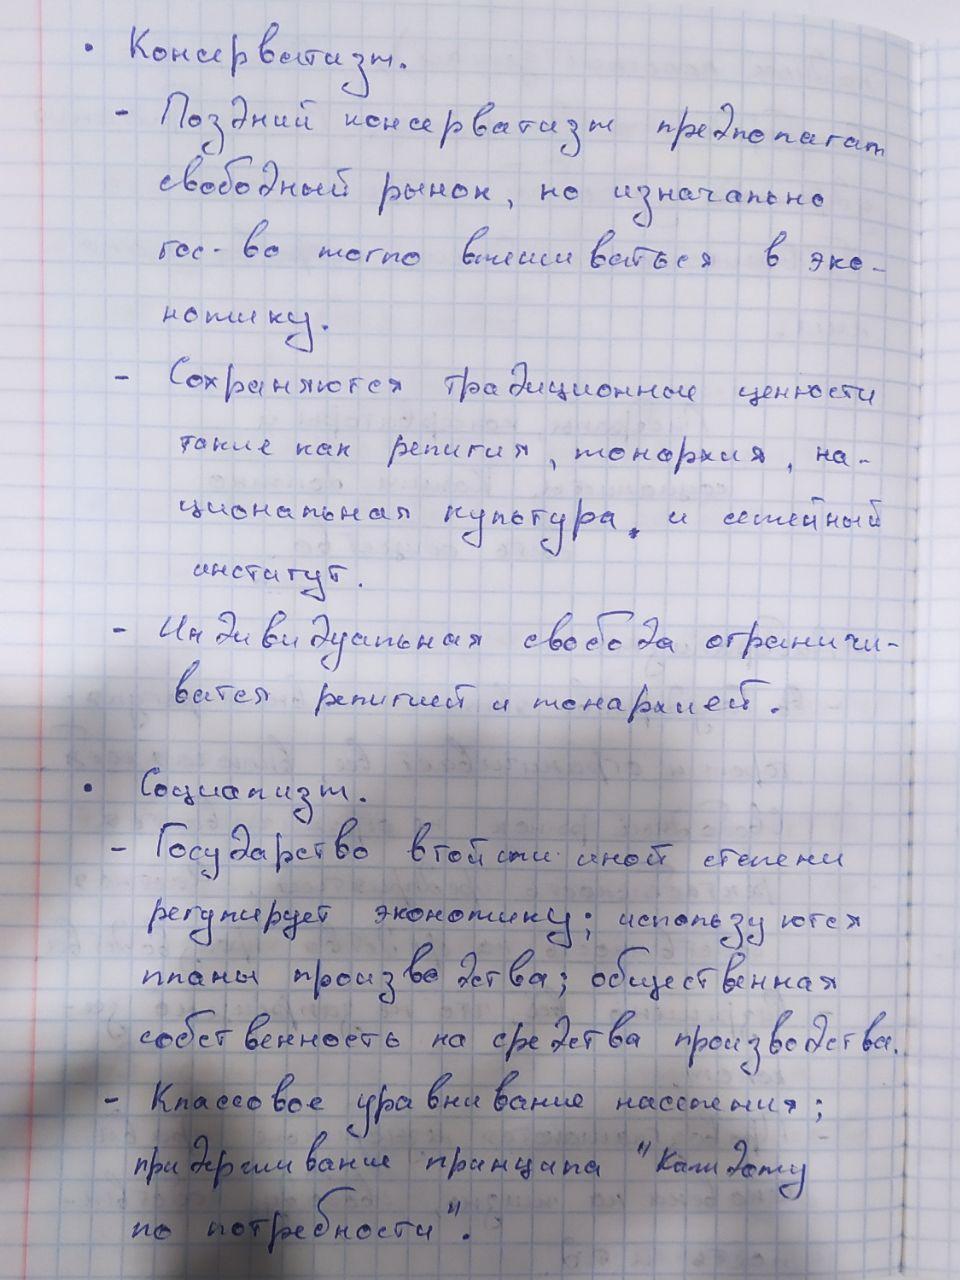 • Консерватизм.
- Поздний консерватизм предполагат
свободный рынок, но изначально
гос-во могло вмешиваться в эко-
номику.
- Сохраняются традиционные ценности
такие как религия, монархия, на-
циональная культура, и семейный
институт.
- Индивидуальная свобода ограничи-
вается религией и монархией.
• Социализм.
- Государство в той или иной степени
регулирует экономику; используются
планы производства; общественная
собственность на средства производства.
- Классовое уравнивание населения;
придерживание принципа "Каждому
по потребности".